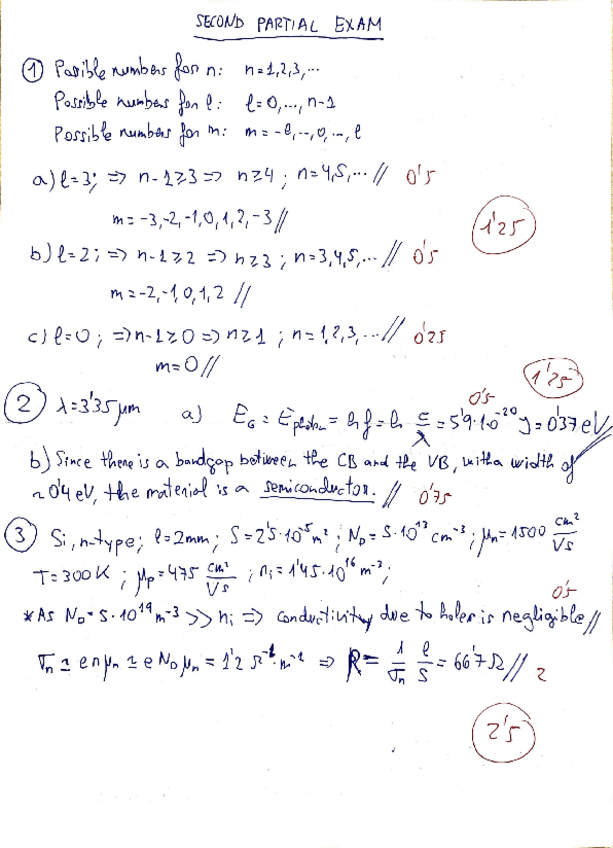 SECOND PARTIAL EXAM
① Posible numbers for n: n=1,2,3,...
Possible numbers for l: l=0,...,n-1
Possible numbers for m: m=-l,...,0,...,l
a) l=3; => n-1≥3 => n≥4 ; n=4,5,... // 0'5
m=-3,-2,-1,0,1,2,-3//
1'25
b) l=2; => n-1≥2 => n≥3 ; n=3,4,5,... // 0'5
m=-2,-1,0,1,2 //
c) l=0; => n-1≥0 => n≥1 ; n=1,2,3,... // 0'25
m=0//
1'25
② λ=3'35μm a) E_G = E_photon = hf = h c/λ = 5'9·10^-20 J = 0'37 eV // 0'5
b) Since there is a bandgap between the CB and the VB, with a width of
~0'4 eV, the material is a semiconductor. // 0'75
③ Si, n-type; l=2mm; S=2'5·10^-5 m²; N_D=5·10^13 cm^-3; μn=1500 cm²/Vs
T=300K; μp=475 cm²/Vs; ni=1'45·10^16 m^-3;
*As N_D=5·10^19 m^-3 >> ni => conductivity due to holes is negligible// 0'5
σn ≃ e n μn ≃ e N_D μn = 1'2 Ω^-1·m^-1 => R = 1/σn l/S = 66'7Ω// 2
2'5